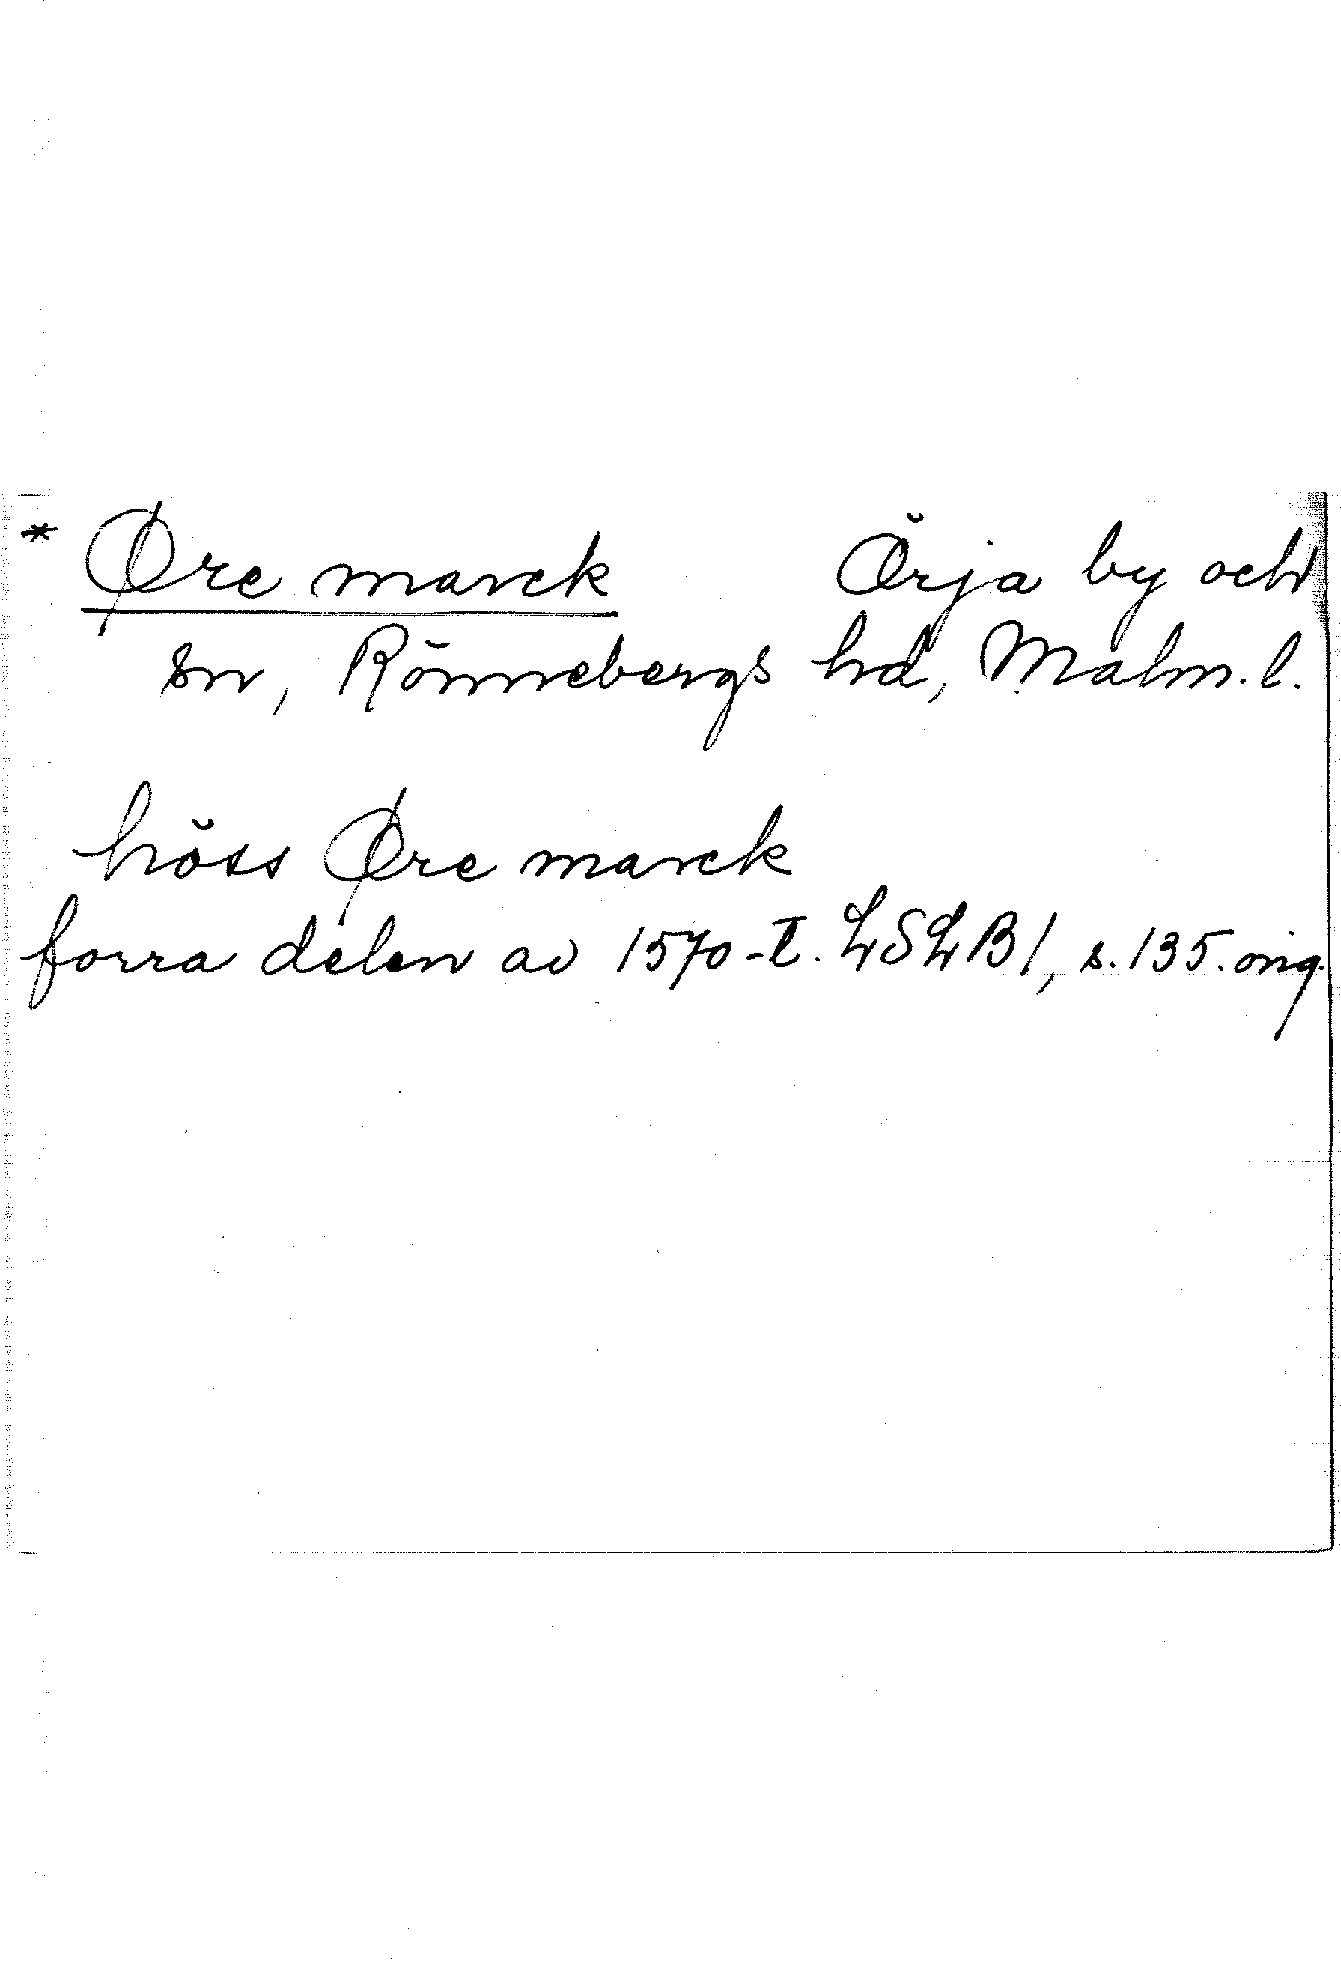 * Øre marck Örja by och
sn, Rönnebergs hd, Malm. l.
höss Øre marck
forra delen av 1570-t. LSLB1, s. 135. orig.